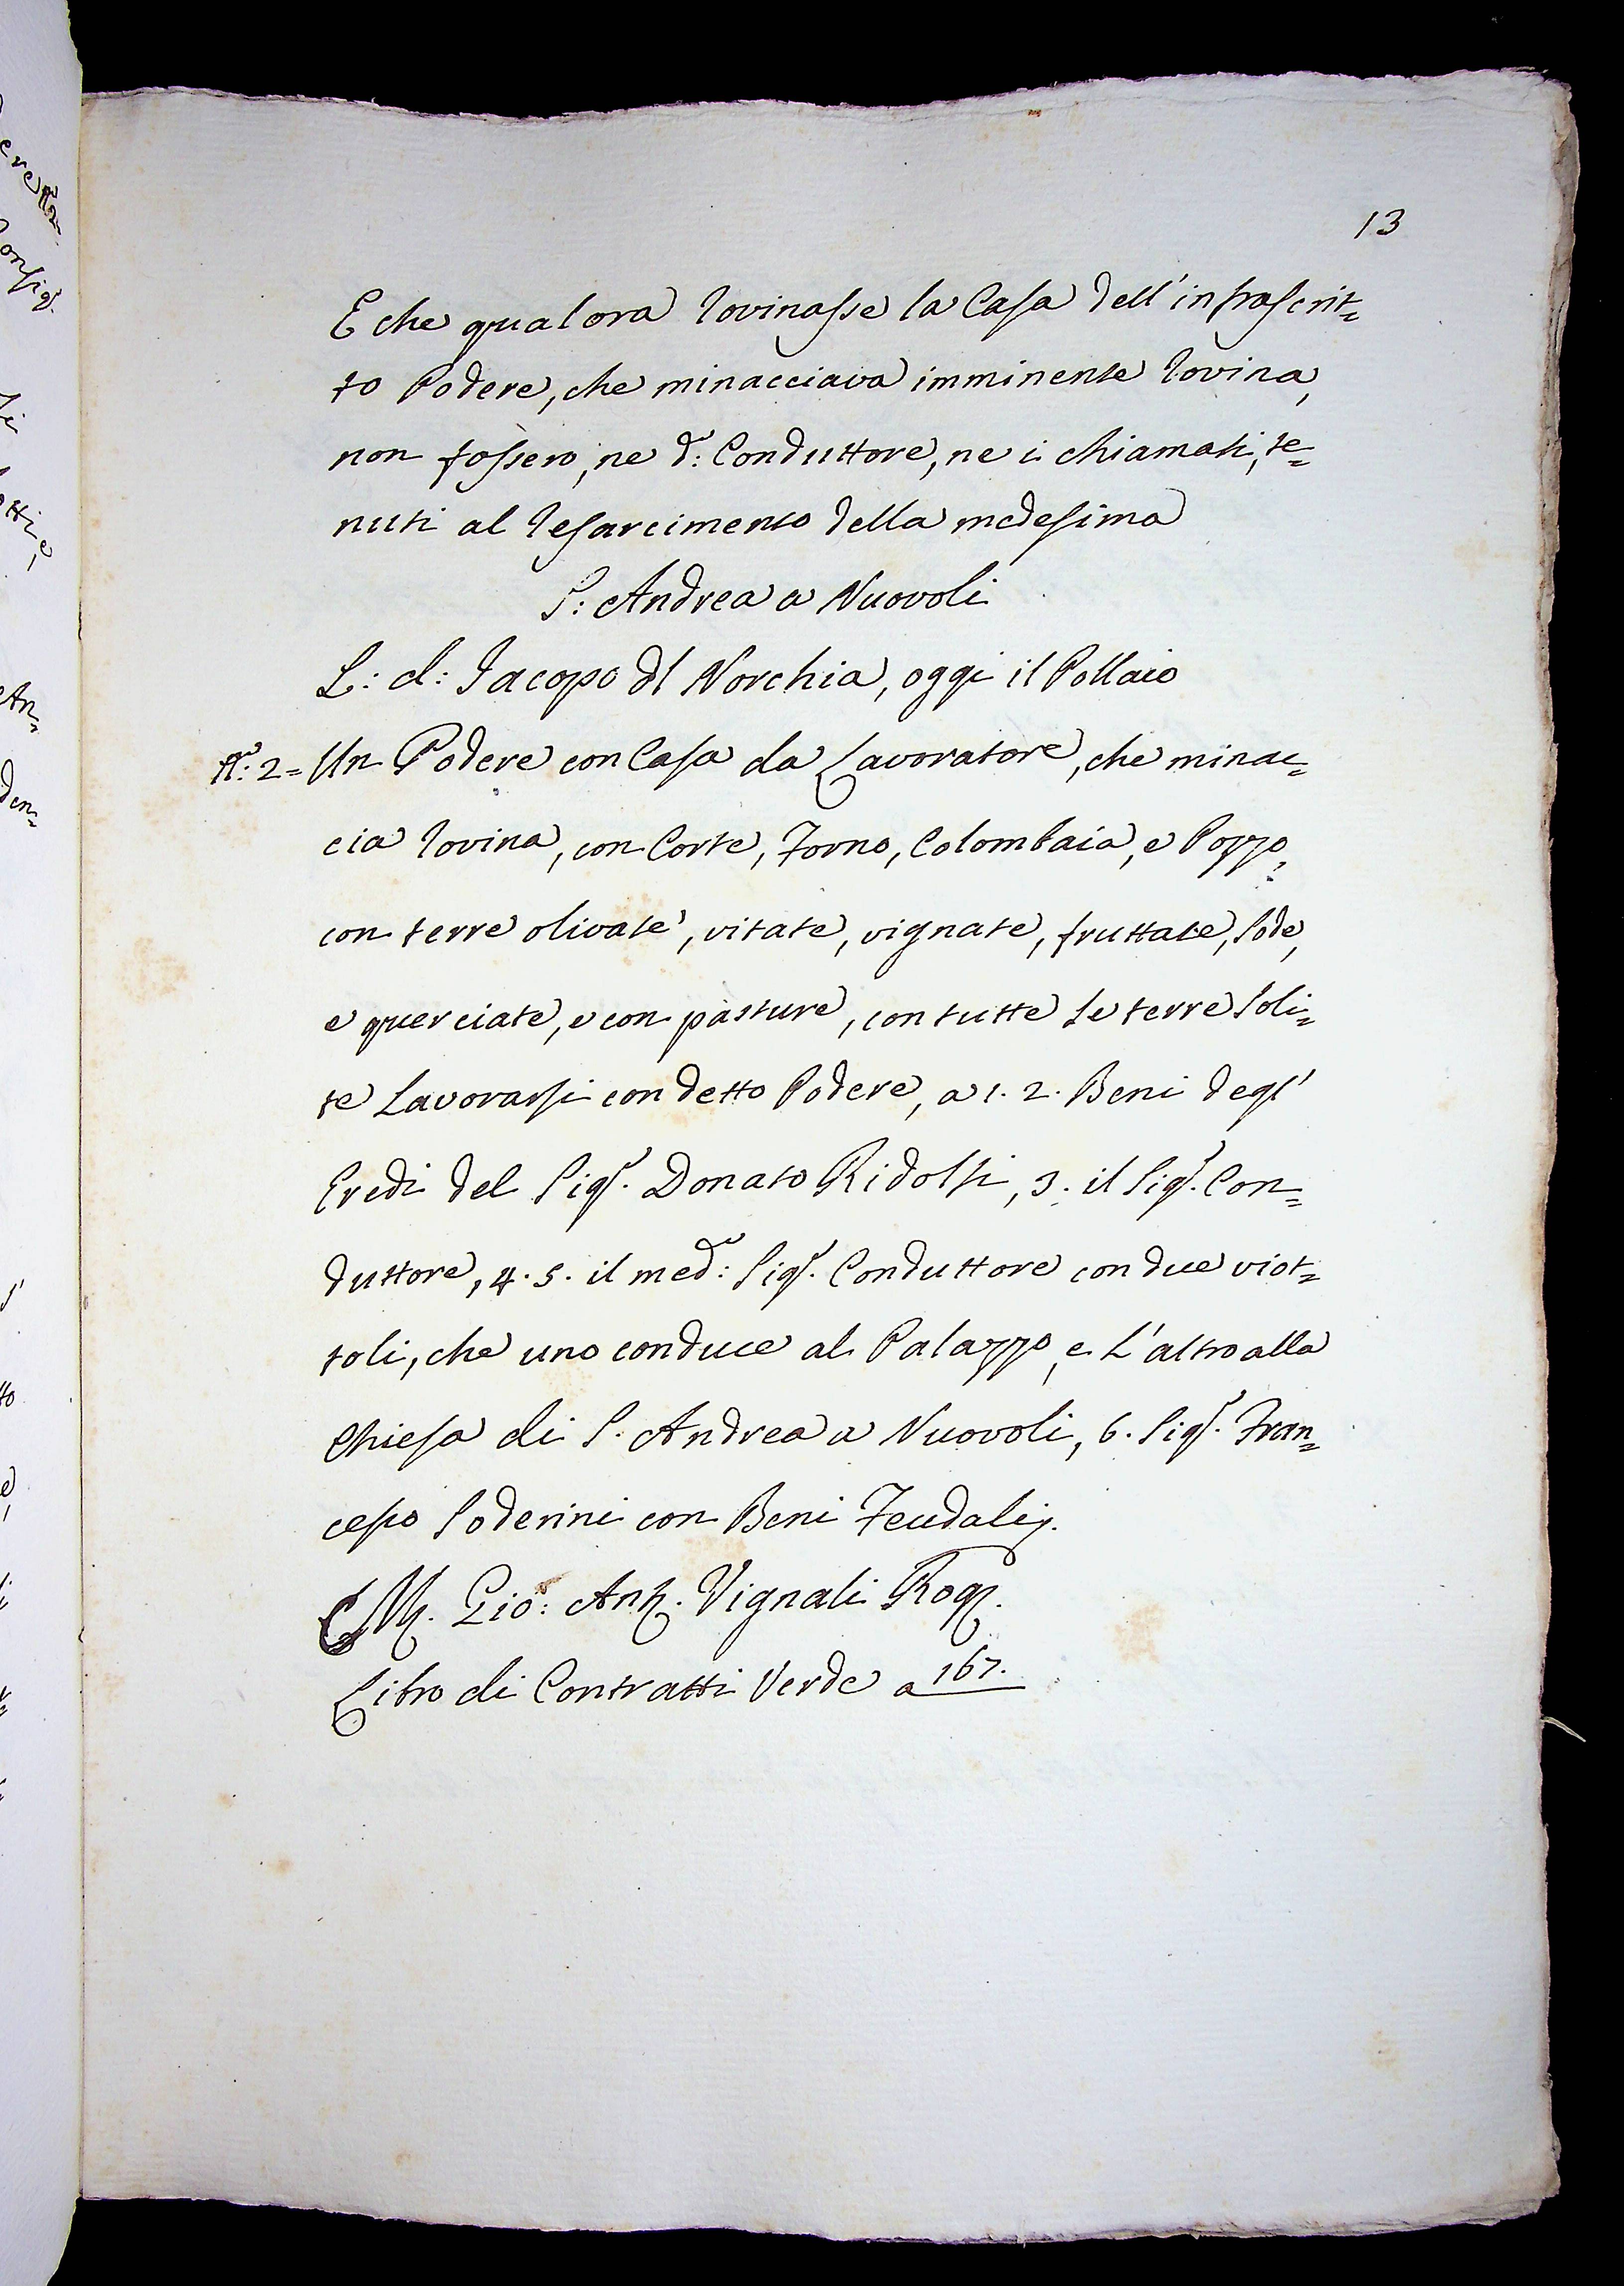 13
E che qualora rovinasse la Casa dell'infrascrit=
to Podere, che minacciava imminente rovina,
non fossero, ne d: Conduttore, ne i chiamati, te=
nuti al resarcimento della medesima
S: Andrea a Nuovoli
L: d: Jacopo dl Norchia, oggi il Pollaio
N: 2= Un Podere con Casa da Lavoratore, che minac=
cia rovina, con Corte, Forno, Colombaia, e Pozzo,
con terre olivate, vitate, vignate, fruttate, sode,
e querciate, e con pasture, con tutte le terre soli=
te Lavorarsi con detto Podere, a 1. 2. Beni degl'
Eredi del Sigr. Donato Ridolfi, 3. il Sigr. Con=
duttore, 4. 5. il med: Sigr. Conduttore con due viot=
toli, che uno conduce al Palazzo, e L'altro alla
Chiesa di S. Andrea a Nuovoli, 6. Sigr. Fran=
cesco Soderini con Beni Feudali.
Gio: Ant. Vignali Rog.
Libro di Contratti Verde a 167.